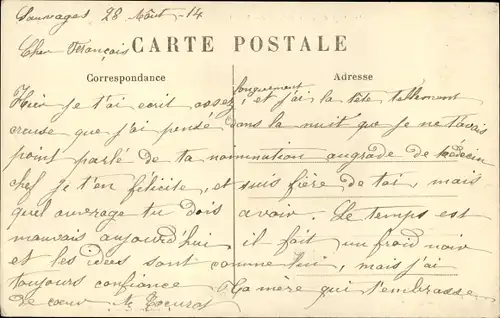 Sauvages 28 Août - 14
Cher François
CARTE POSTALE
Correspondance
Adresse
Hier je t'ai écrit assez longuement, et j'ai la tête tellement
creuse que j'ai pensé dans la nuit que je ne t'avais
point parlé de ta nomination au grade de médecin
chef je t'en félicite, et suis fière de toi, mais
quel ouvrage tu dois avoir. Le temps est
mauvais aujourd'hui il fait un froid noir
et les idées sont comme lui, mais j'ai
toujours confiance Ta mère qui t'embrasse
de cœur